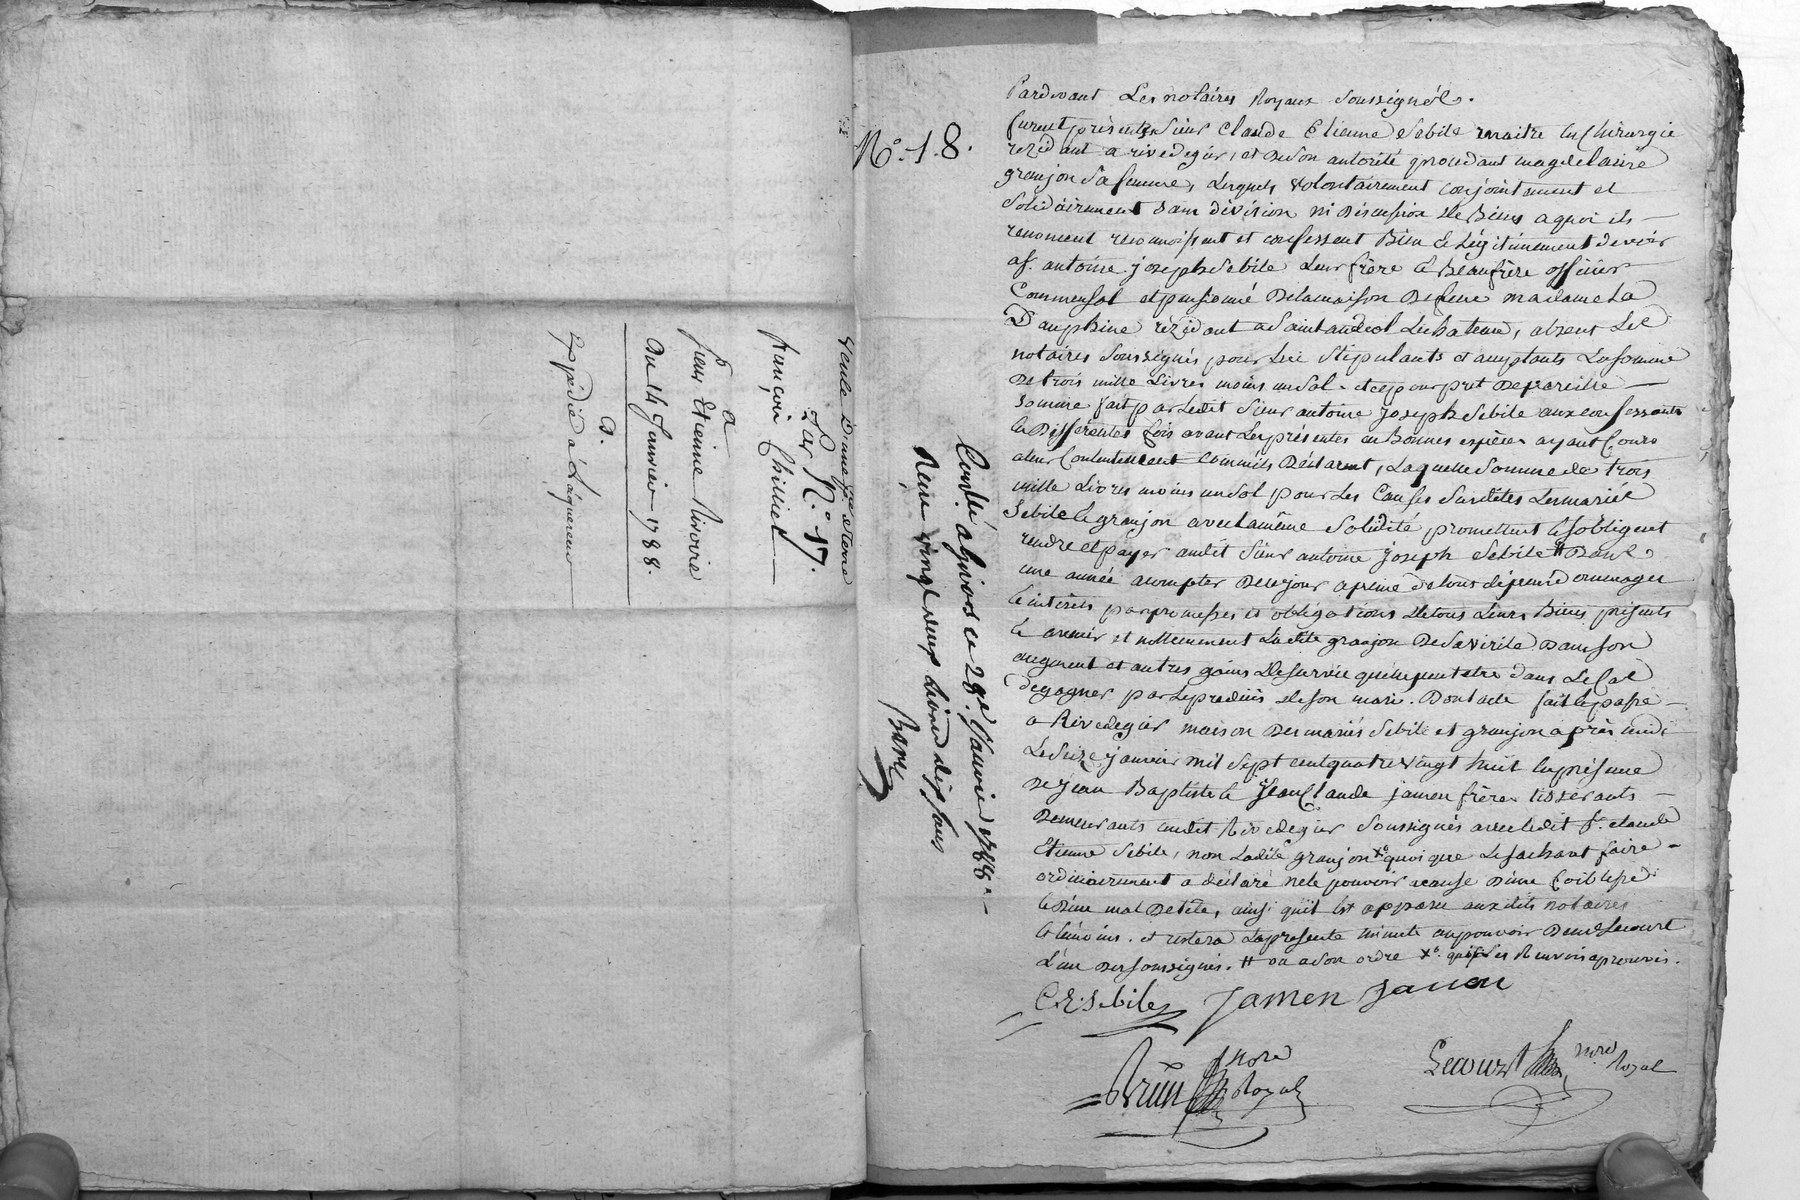 Vente d'une pce de terre
par N.° 17.
françois Thilliet
a
sieur Etienne Rivoire
du 14 Janvier 1788.
Expédié à L'aquereur
N.° 1.8.
Pardevant Les notaires Royaux Soussignés.
furent présents Sieur Claude Etienne Sebile maitre en Chirurgie
rezidant a rivedegier, et de Son autorité procedant magdelaine
granjon Sa femme, Lesquels volontairement conjointement et
Solidairement sans division ni Discussion de Biens a quoi ils
renoncent reconnoissent et confessent Bien et Légitimement devoir
a sr. antoine joseph Sebile Leur frère et Beaufrère officier
Commensal et pensionné de la maison De feue madame La
Dauphine rézidant a Saint andeol Le chateau, absent Les
notaires Soussignés pour Lui Stipulants et acceptants La Somme
De trois mille Livres moins un Sol, et ce pour pret De pareille
Somme fait par Ledit Sieur antoine joseph Sebile aux confessants
en Differentes fois avant Les présentes en Bonnes espèces ayant Cours
a leur Contentement comme ils Déclarent, Laquelle Somme de trois
mille Livres moins un Sol pour Les Causes Susdites Les mariés
Sebile et granjon avec La même Solidité promettent et s'obligent
rendre et payer audit Sieur antoine joseph Sebile # Dans
une année a compter De ce jour a peine de tous dépens dommages
et intérêts par promesses et obligations de tous Leurs Biens présents
et avenir et nottemment Ladite granjon De Sa virile Dans Son
augment et autres gains De Survie qu'elle peut etre dans Le Cas
de gagner par Le prédécès de Son mari. Dont acte fait et passé
a Rivedegier maison Des mariés Sebile et granjon après midi
Le Seize janvier mil Sept cent quatre vingt huit en présence
De jean Baptiste et jean Claude jamen frères tisserants
Demeurants audit Rivedegier Soussignés avec Ledit sr. claude
Etienne Sebile, non Ladite granjon x° quoique Le Sachant faire
ordinairement a déclaré ne le pouvoir a cause D'une foiblesse
et d'une mal De tete, ainsi qu'il Est apparu auxdits notaires
et témoins. et restera La presente minute au pouvoir De me Lecourt
L'un Des Soussignés. # ou a Son ordre x°. qui Les Renvois aprouvés.
C. E. Sebile Jamen Jamen
Brun Nore Royal
Lecourt nore Royal
Conllé a givors ce 28e. Janvier 1788.
Reçu vingt deux Livres dix sous